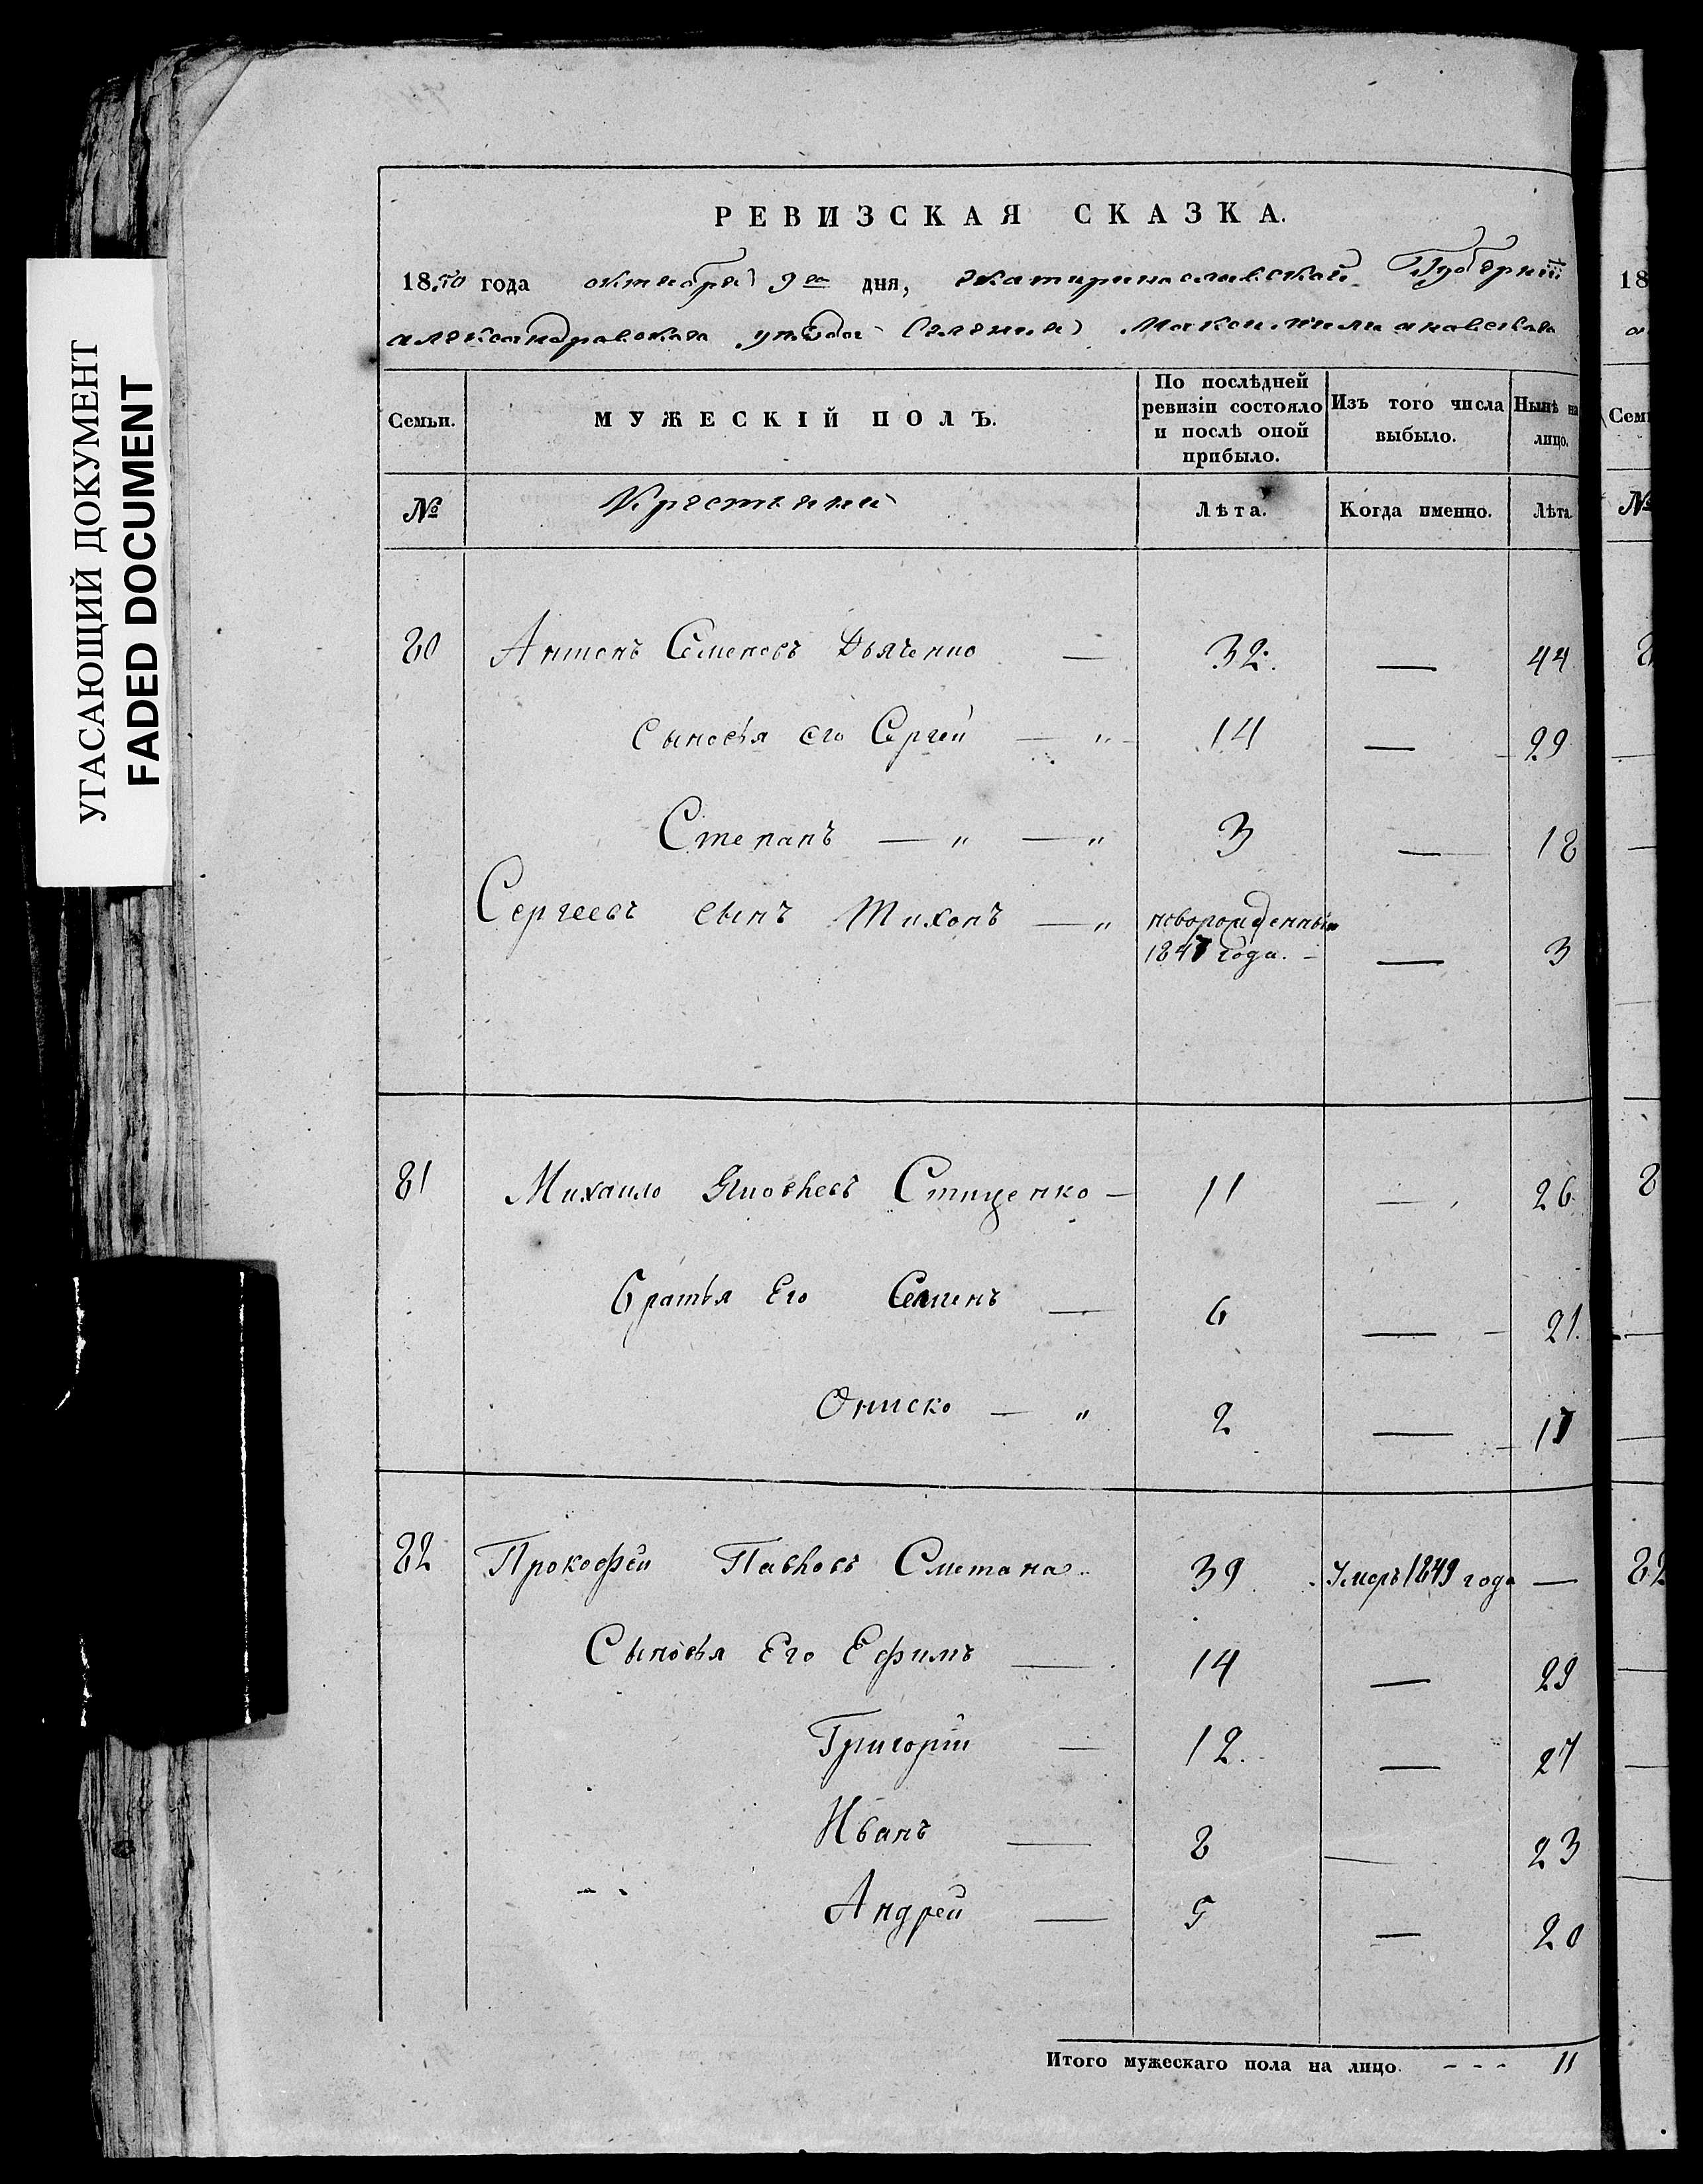 УГАСАЮЩИЙ ДОКУМЕНТ
FADED DOCUMENT
РЕВИЗСКАЯ СКАЗКА.
1850 года октября 9го дня, Екатеринославской Губернии
александровскаго уезда Селения Максимилиановскаго
Семьи. МУЖЕСКІЙ ПОЛЪ. По послѣдней ревизіи состояло и послѣ оной прибыло. Изъ того числа выбыло. Нынѣ на лицо.
№ Крестьяни Лѣта. Когда именно. Лѣта.
80 Антонъ Семеновъ Дьяченко — 32. — 44
Сыновья Его Сергей — " 14 — 29
Степанъ — " — " 3 — 18
Сергеевъ сынъ Тихонъ — " новорожденный
1847 года. — — 3
81 Михаило Стиценко — 11 — 26
Братья Его Семенъ — 6 — 21.
Ониско — " 2 — 17
82 Прокофей Павловъ Сметана 39 Умеръ 1849 года —
Сыновья Его Ефимъ — 14 — 29
Григорій — 12. — 27
Иванъ — 8 — 23
Андрей — 5 — 20
Итого мужескаго пола на лицо. - - - 11
18
Семь
№
8
82